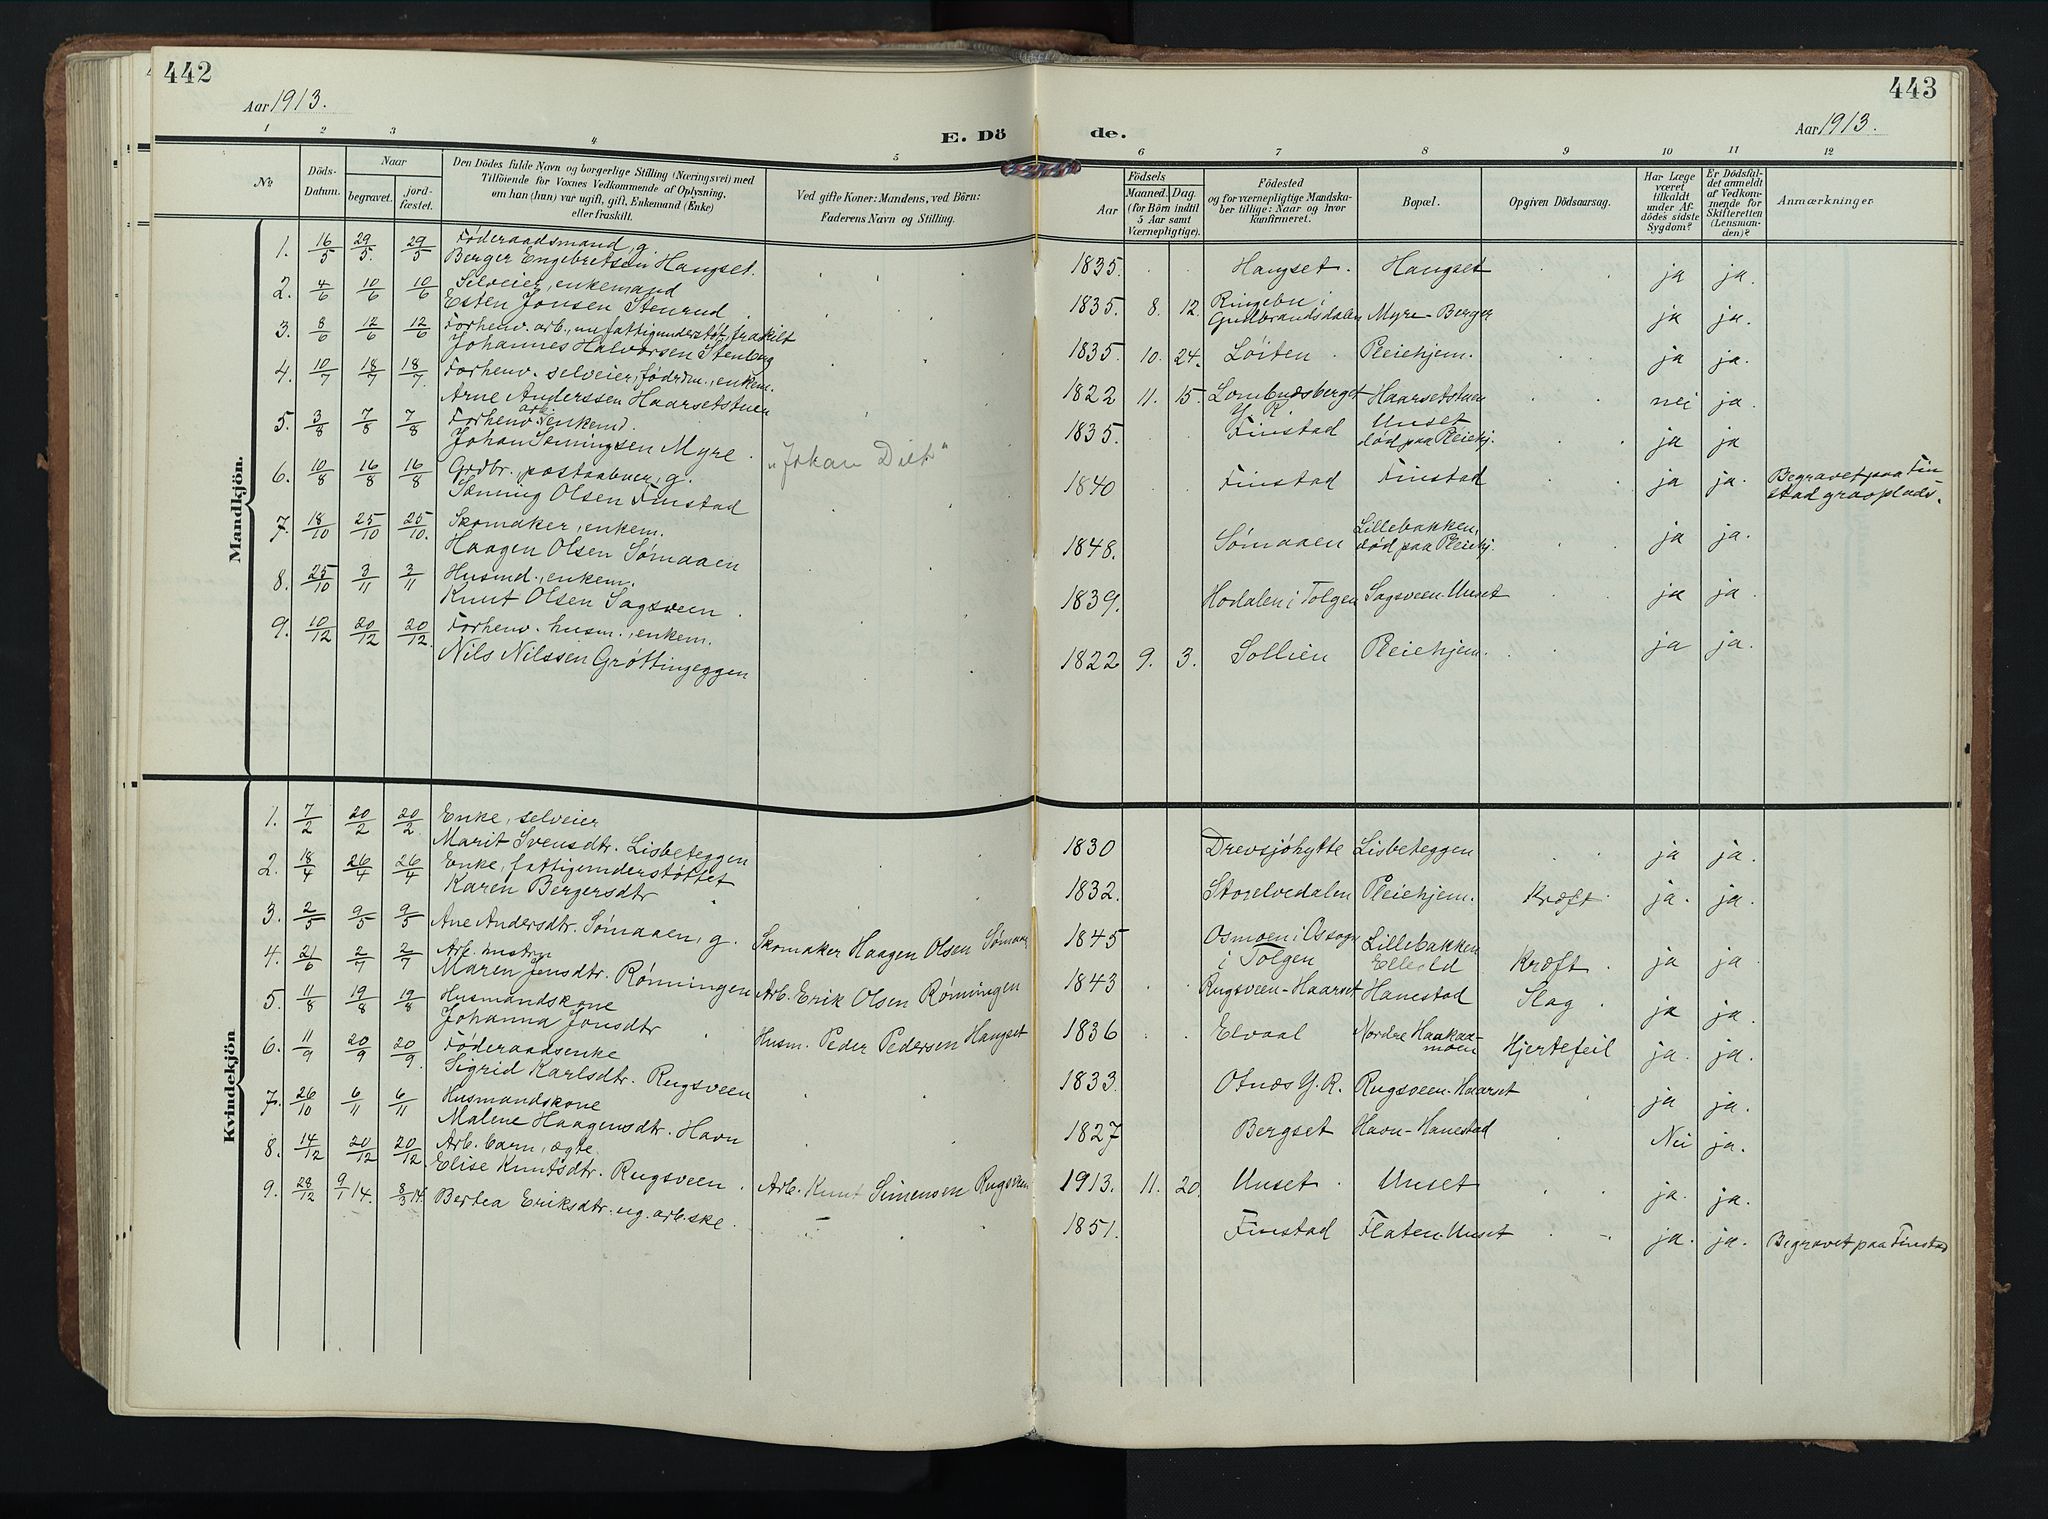 442
443
Aar 1913.
Aar 1913.
E. Dö
de.
1 2 3 4 5 6 7 8 9 10 11 12
№
Döds-
Datum.
Naar
begravet.
jord-
fæstet.
Den Dödes fulde Navn og borgerlige Stilling (Næringsvei) med
Tilföiende for Voxnes Vedkommende af Oplysning,
om han (hun) var ugift, gift, Enkemand (Enke)
eller fraskilt.
Ved gifte Koner: Mandens, ved Börn:
Faderens Navn og Stilling.
Födsels
Aar
Maaned. Dag.
(for Börn indtil
5 Aar samt
Værnepligtige).
Födested
og for værnepligtige Mandska-
ber tillige: Naar og hvor
konfirmeret.
Bopæl.
Opgiven Dödsaarsag.
Har Læge
været
tilkaldt
under Af-
dödes sidste
Sygdom?
Er Dödsfal-
det anmeldt
af Vedkom-
mende for
Skifteretten
(Lensman-
den)?
Anmærkninger
Mandkjön.
1. 16/5 29/5. 29/5 Føderaadsmand, g.
Berger Engebretsen Hangset. 1835. Hangset. Hangset ja ja.
2. 4/6 10/6 10/6 Selveier, enkemand
Esten Jonsen Stenrud 1835. 8. 12. Ringebu i
Gudbrandsdalen Myre-Berger ja ja.
3. 8/6 12/6 12/6 Forhenv. arb., nu fattigunderstøt, fraskilt
Johannes Halvorsen Stenberg 1835. 10. 24. Løiten. Pleiehjem. ja ja.
4. 10/7 18/7 18/7. Forhenv. selveier, fødrdm., enkem.
Arne Anderssen Haarsetstuen 1822 11. 15. Lombnæsberget
Y. R. Haarsetstuen nei ja.
5. 3/8 7/8 7/8 Forhenv. arb. enkemd.
Johan Semingsen Myre. "Johan Dilt" 1835. Finstad Unset
død paa Pleiehj. ja ja
6. 10/8 16/8 16/8 Grdbr., postaabner, g.
Sæming Olsen Finstad 1840 Finstad Finstad ja ja. Begravet paa Fin
stad gravplads.
7. 18/10 25/10 25/10. Skomaker, enkem.
Haagen Olsen Sømaaen 1848. Sømaaen Lillebakken,
død paa Pleiehj. ja ja.
8. 25/10 3/11 3/11 Husmd., enkem.
Knut Olsen Sagsveen. 1839. Hodalen i Tolgen Sagsveen-Unset ja ja.
9. 10/12 20/12 20/12. Forhenv. husm., enkem.
Nils Nilssen Grøttingeggen 1822 9. 3. Sollien Pleiehjem. ja ja.
Kvindekjön
1. 7/2 20/2 20/2. Enke, selveier
Marit Svensdtr. Lisbeteggen 1830 Drevsjøhytte Lisbeteggen ja ja.
2. 18/4 26/4 26/4 Enke, fattigunderstøttet
Karen Bergersdtr 1832. Storelvedalen Pleiehjem. Kræft. ja. ja.
3. 2/5 9/5 9/5 Ane Andersdtr. Sømaaen, g. Skomaker Haagen Olsen Sømaaen 1845 Osmoen i Os sogn
i Tolgen Lillebakken
Kræft. ja ja.
4. 21/6 2/7 2/7 Arb. mstru
Maren Jensdtr. Rønningen Arb. Erik Olsen Rønningen 1843 Rugsveen-Haarset Hanestad Slag. ja ja.
5. 11/8 19/8 19/8 Husmandskone
Johanna Jonsdtr Husm. Peder Pedersen Hangset 1836 Elvaal Nordre Haakaa-
moen Hjertefeil ja. ja.
6. 11/9 20/9 20/9. Føderaadsenke
Sigrid Karlsdtr. Rugsveen 1833. Otnes Y. R. Rugsveen-Haarset ja ja.
7. 26/10 6/11 6/11 Husmandskone
Malene Haagensdtr. Havn 1827 Bergset Havn-Hanestad Nei ja.
8. 14/12 20/12 20/12. Arb. barn, ægte.
Elise Knutsdtr. Rugsveen. Arb. Knut Simensen Rugsveen 1913. 11. 20. Unset. Unset ja. ja.
9. 28/12 9/1 14. 8/3 14. Bertea Eriksdtr. ug. arb.ske. 1851. Finstad Flaten-Unset ja. ja. Begravet paa Finstad